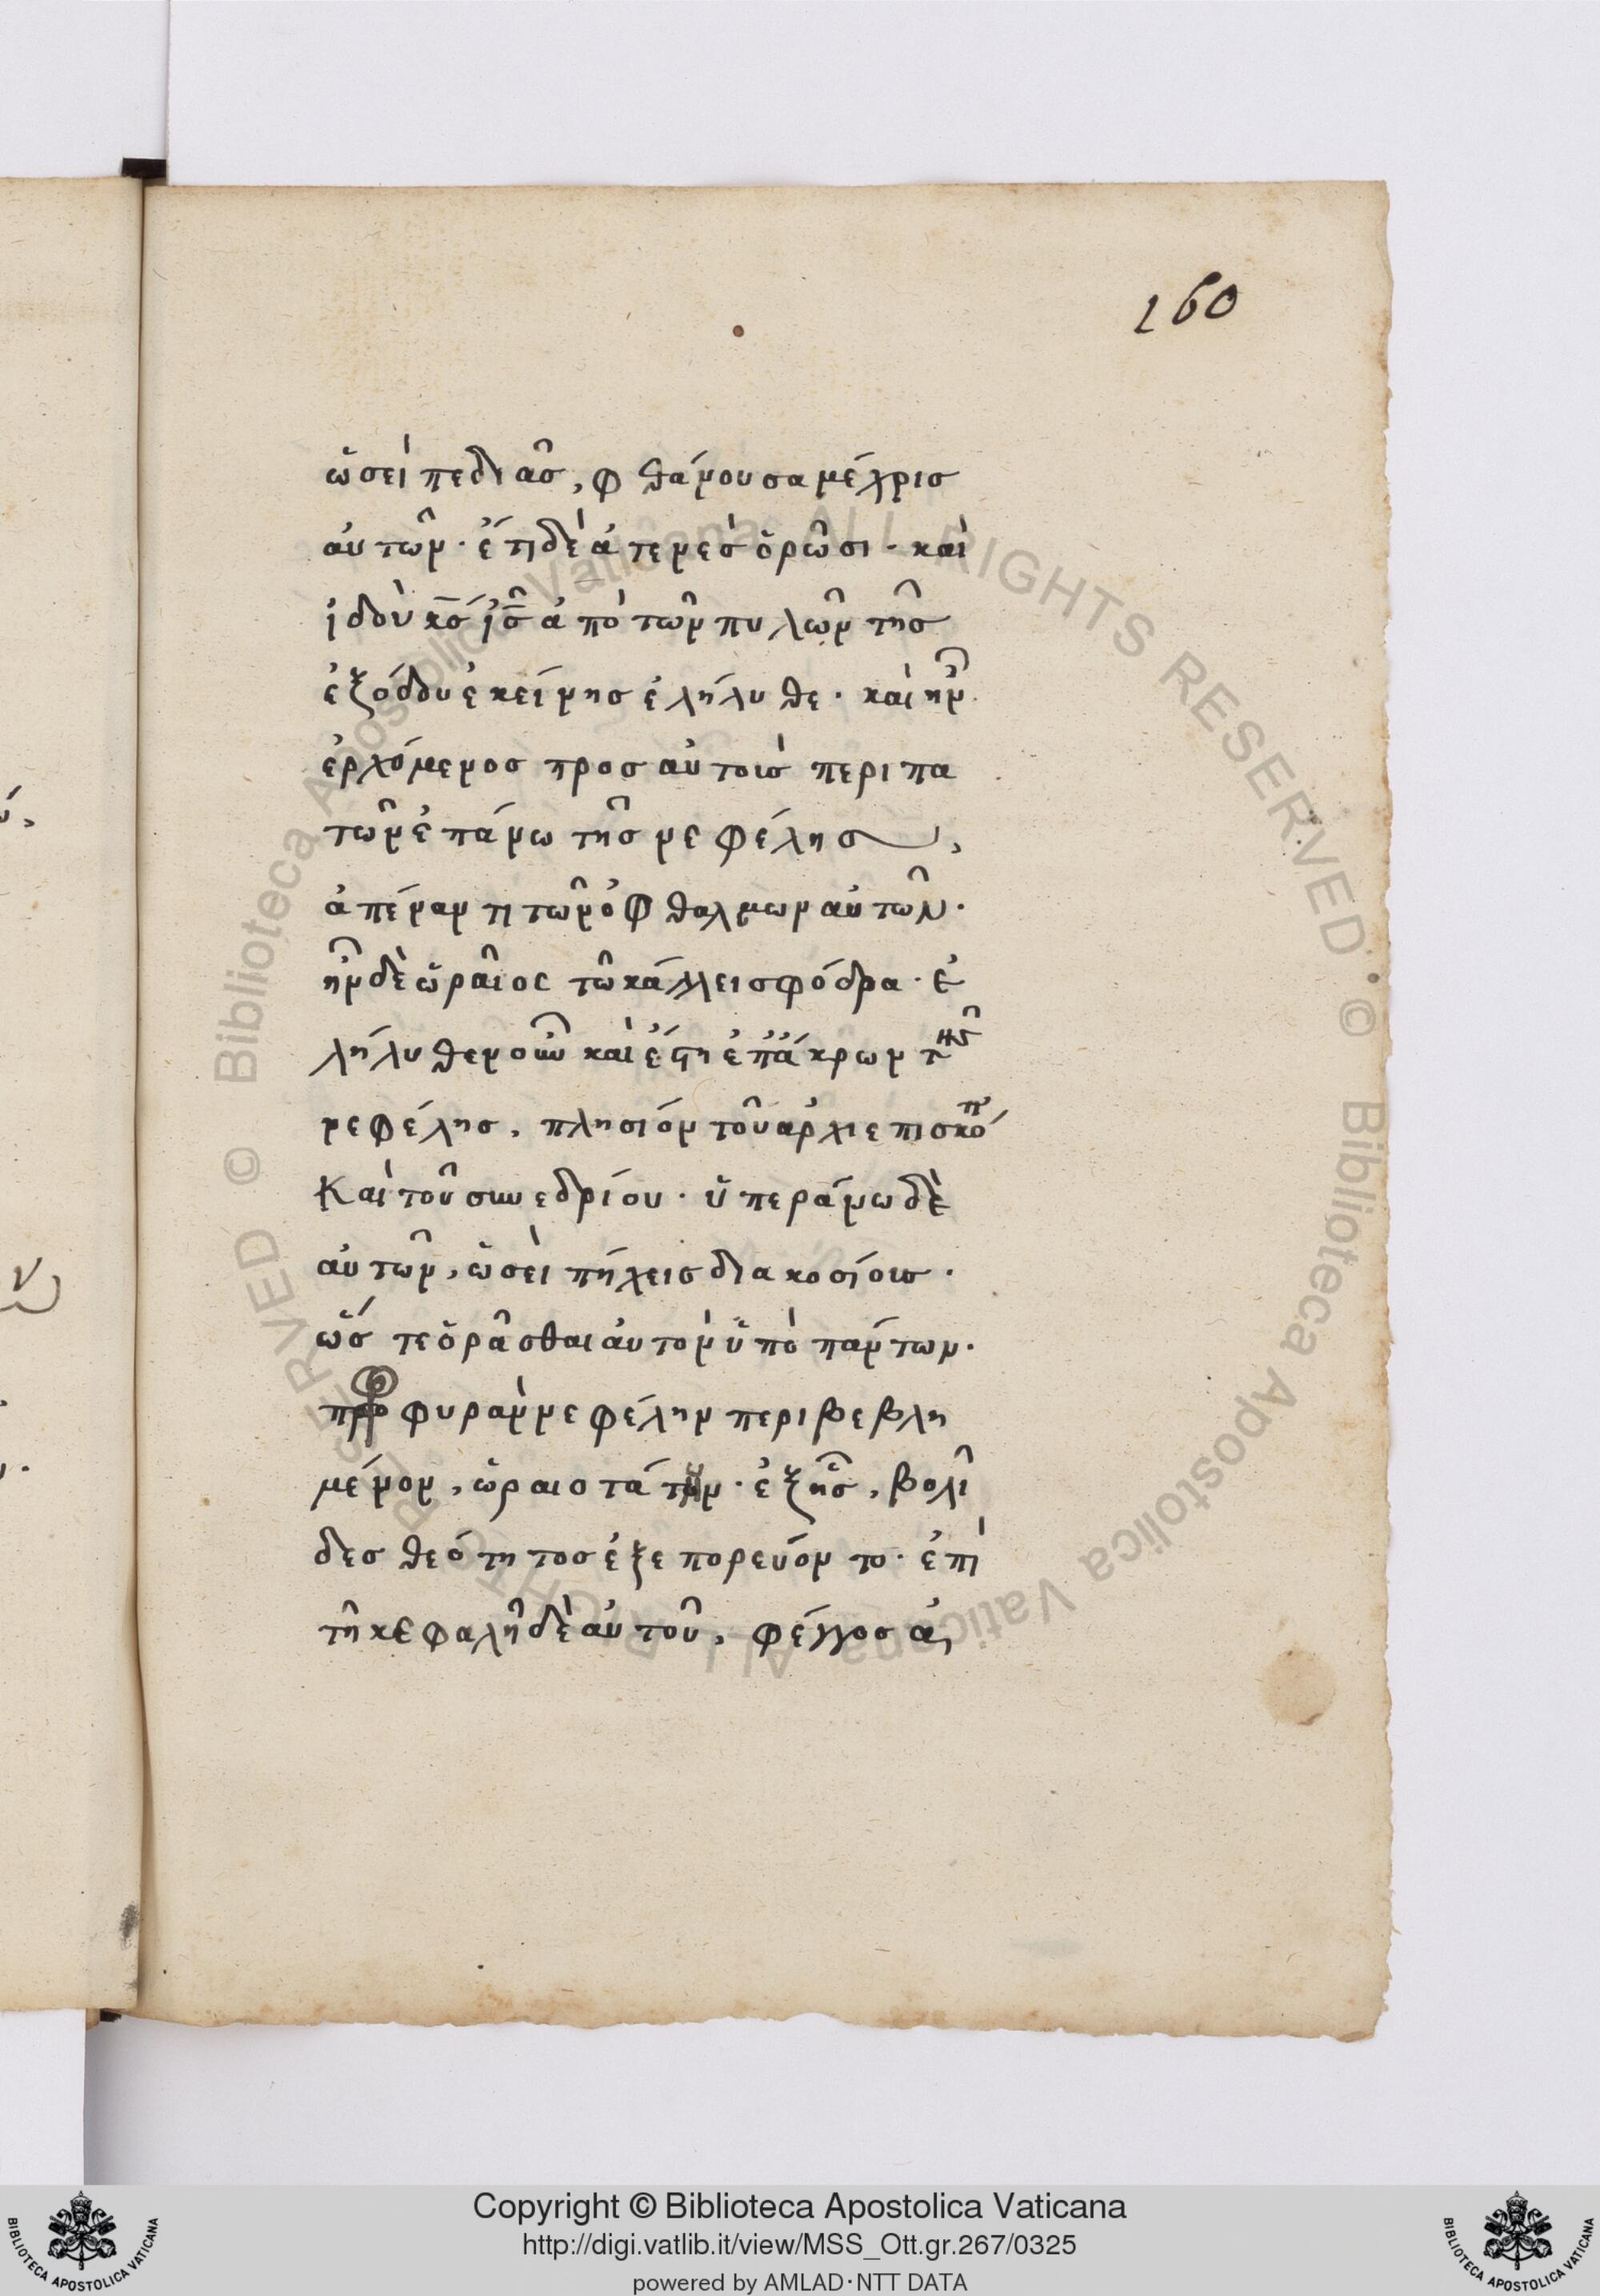 160
ὡσεὶ πεδιὰς, φθάνουσα μέχρις
αὐτῶν· ἔτι δὲ ἀτενὲς ὁρῶσι· καὶ
ἰδοὺ κ̅ς̅ ἰ̅ς̅ ἀπὸ τῶν πυλῶν τῆς
ἐξόδου ἐκείνης ἐλήλυθε· καὶ ἦν
ἐρχόμενος προς αὐτοὺς περιπα
τῶν ἐπάνω τῆς νεφέλης,
ἀπέναντι τῶν ὀφθαλμων αὐτῶν·
ἦν δὲ ὡραῖος τῶ κάλλει σφόδρα· ἐ
λήλυθεν οὖν καὶ ἔστη ἐπ' ἄκρων τῆς
νεφέλης, πλησίον τοῦ ἀρχιεπισκό̅π
Καὶ τοῦ συνεδρίου· ὑπεράνω δὲ
αὐτῶν, ὡσεὶ πήχεις διακοσίοις·
ὥς τε ὁρᾶσθαι αὐτὸν ὑπὸ πάντων·
φυρὰν νεφέλην περιβεβλη
μένον, ὡραιοτάτην· ἐξ ἧς, βολί
δες θεότητος ἐξεπορεύοντο· ἐπὶ
τῆ κεφαλῆ δὲ αὐτοῦ, φέγγος ἀ,
Copyright © Biblioteca Apostolica Vaticana
http://digi.vatlib.it/view/MSS_Ott.gr.267/0325
powered by AMLAD·NTT DATA
BIBLIOTECA APOSTOLICA VATICANA
BIBLIOTECA APOSTOLICA VATICANA
© Biblioteca Apostolica Vaticana ALL RIGHTS RESERVED © Biblioteca Apostolica Vaticana ALL RIGHTS RESERVED